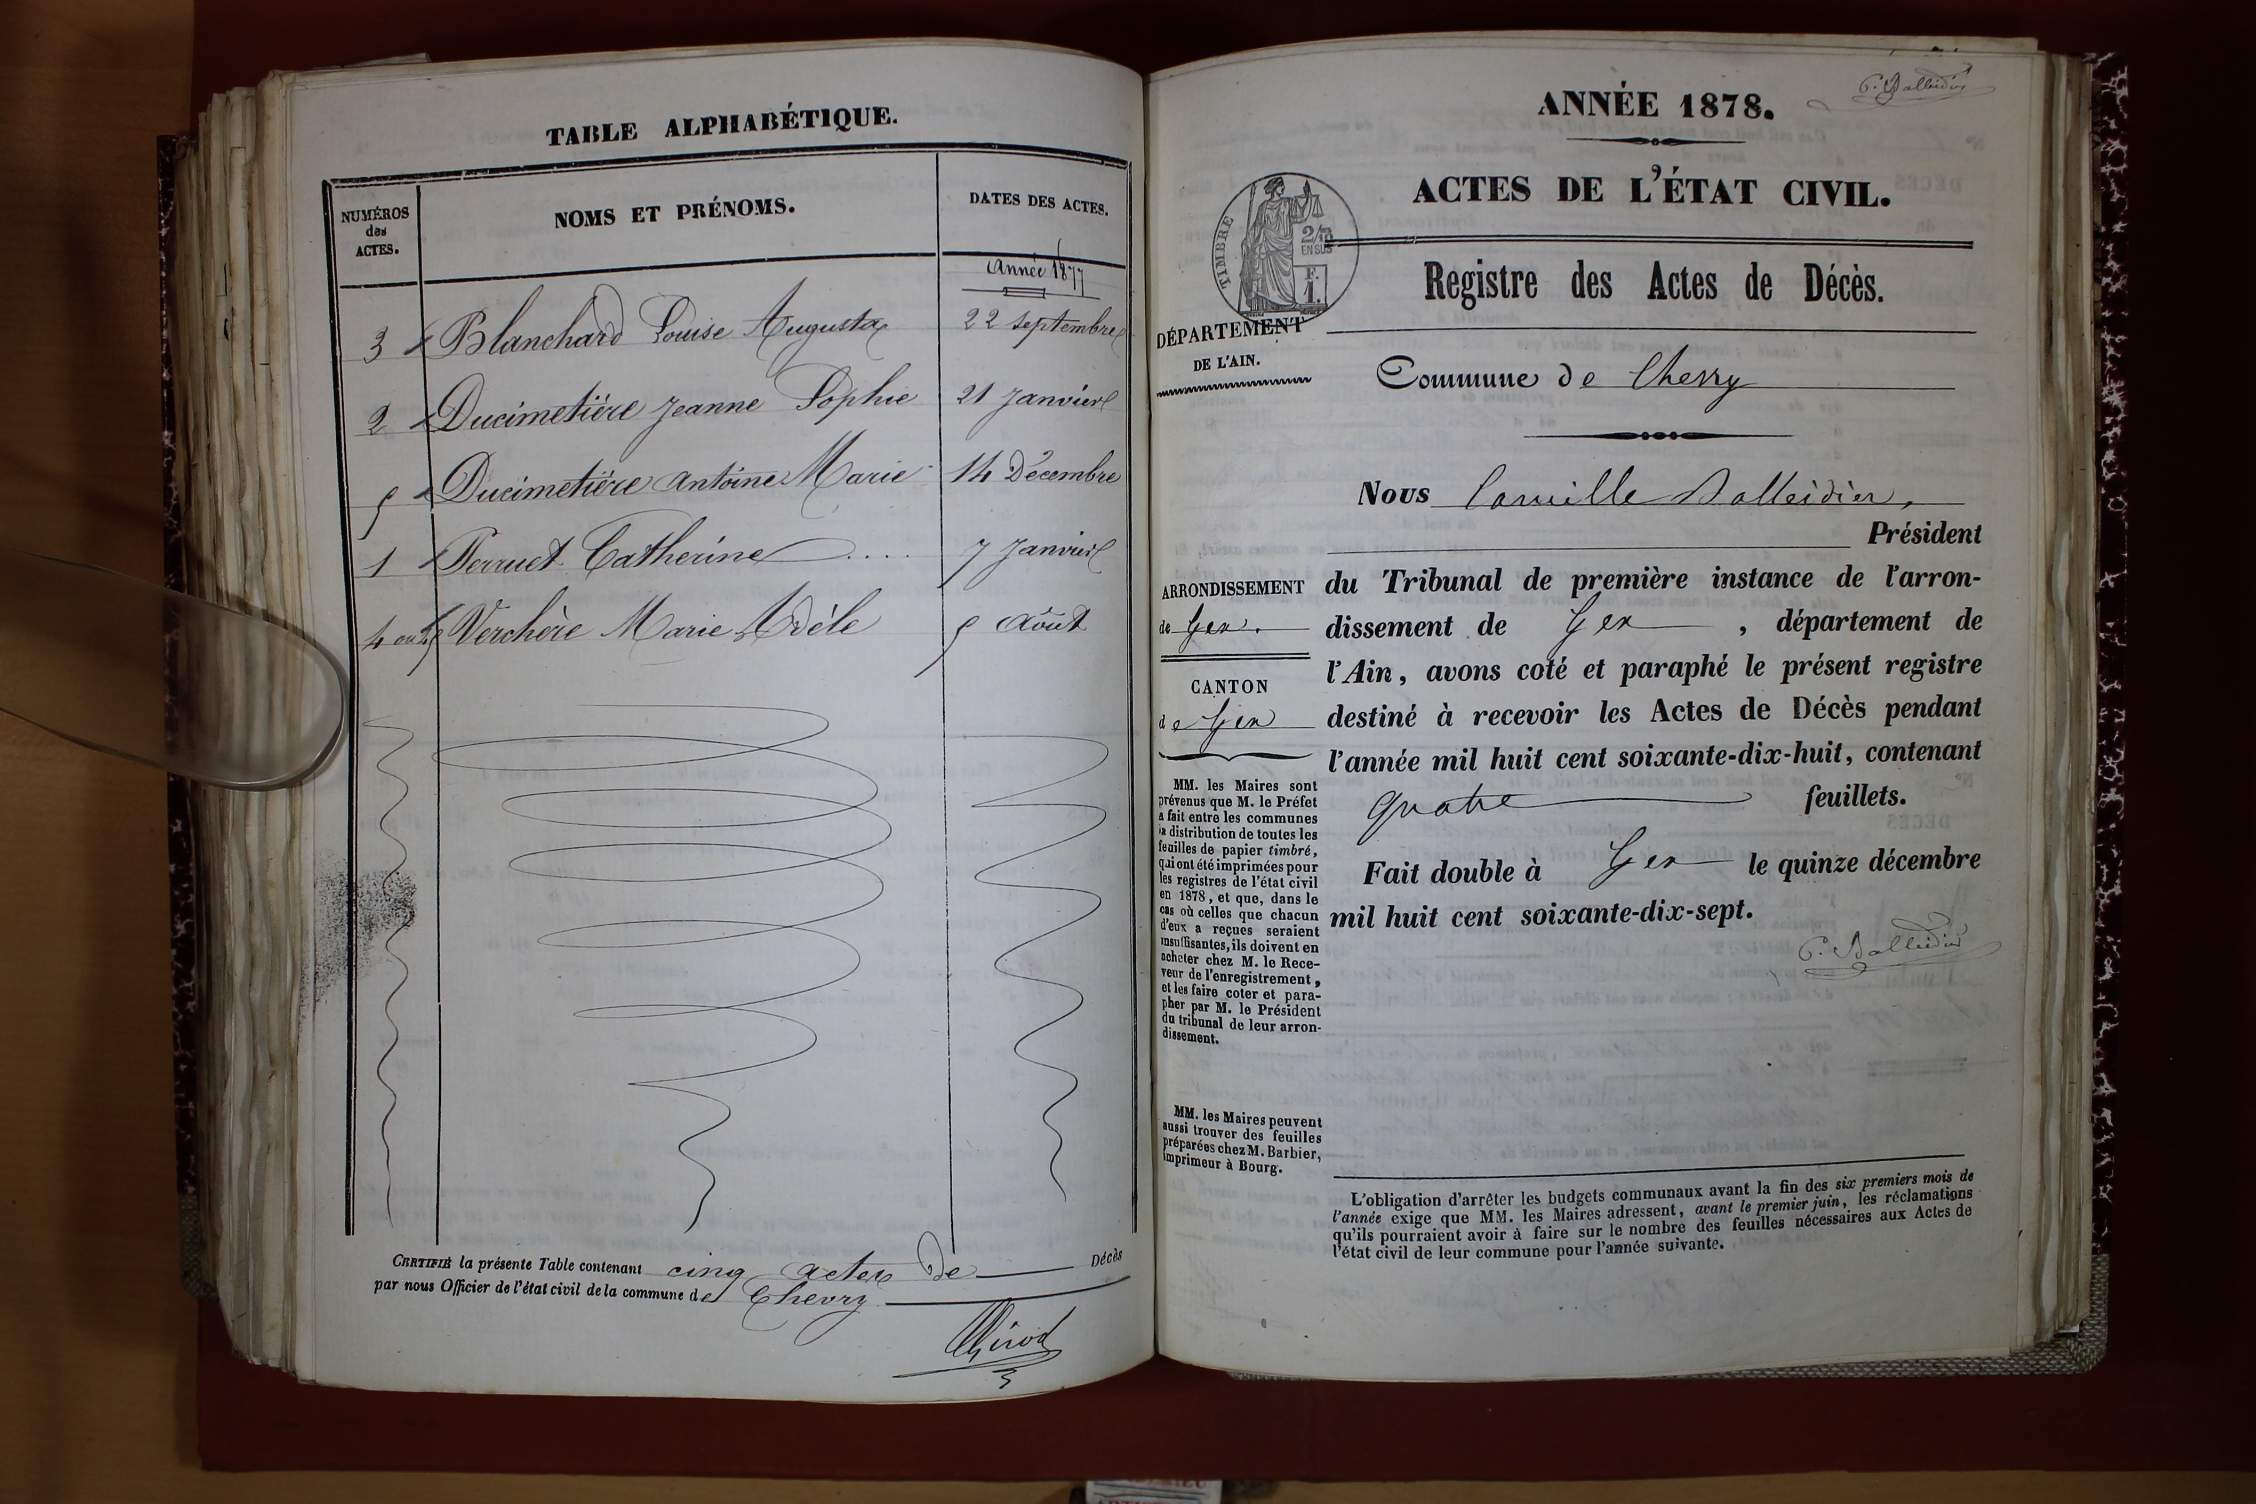 TABLE ALPHABÉTIQUE.
NUMÉROS
des
ACTES.
NOMS ET PRÉNOMS.
DATES DES ACTES.
Année 1877
3 Blanchard Louise Augusta 22 Septembre
2 Ducimetière Jeanne Sophie 21 Janvier
5 Ducimetière Antoine Marie 14 Décembre
1 Perruet Catherine .... 7 Janvier
4 Verchère Marie Adèle 5 Août
CERTIFIÉ la présente Table contenant cinq actes de Décès
par nous Officier de l'état civil de la commune de Chevry
Girod
C. Balleidier
ANNÉE 1878.
ACTES DE L'ÉTAT CIVIL.
TIMBRE
2/10
EN SUS
F.
1.
Registre des Actes de Décès.
DÉPARTEMENT
DE L'AIN.
Commune de Chevry
Nous Camille Balleidier,
Président
du Tribunal de première instance de l'arron-
dissement de Gex, département de
l'Ain, avons coté et paraphé le présent registre
destiné à recevoir les Actes de Décès pendant
l'année mil huit cent soixante-dix-huit, contenant
quatre feuillets.
Fait double à Gex le quinze décembre
mil huit cent soixante-dix-sept.
C. Balleidier
ARRONDISSEMENT
de Gex.
CANTON
de Gex
MM. les Maires sont
prévenus que M. le Préfet
a fait entre les communes
la distribution de toutes les
feuilles de papier timbré,
qui ont été imprimées pour
les registres de l'état civil
en 1878, et que, dans le
cas où celles que chacun
d'eux a reçues seraient
insuffisantes, ils doivent en
acheter chez M. le Rece-
veur de l'enregistrement,
et les faire coter et para-
pher par M. le Président
du tribunal de leur arron-
dissement.
MM. les Maires peuvent
aussi trouver des feuilles
préparées chez M. Barbier,
imprimeur à Bourg.
L'obligation d'arrêter les budgets communaux avant la fin des six premiers mois de
l'année exige que MM. les Maires adressent, avant le premier juin, les réclamations
qu'ils pourraient avoir à faire sur le nombre des feuilles nécessaires aux Actes de
l'état civil de leur commune pour l'année suivante.